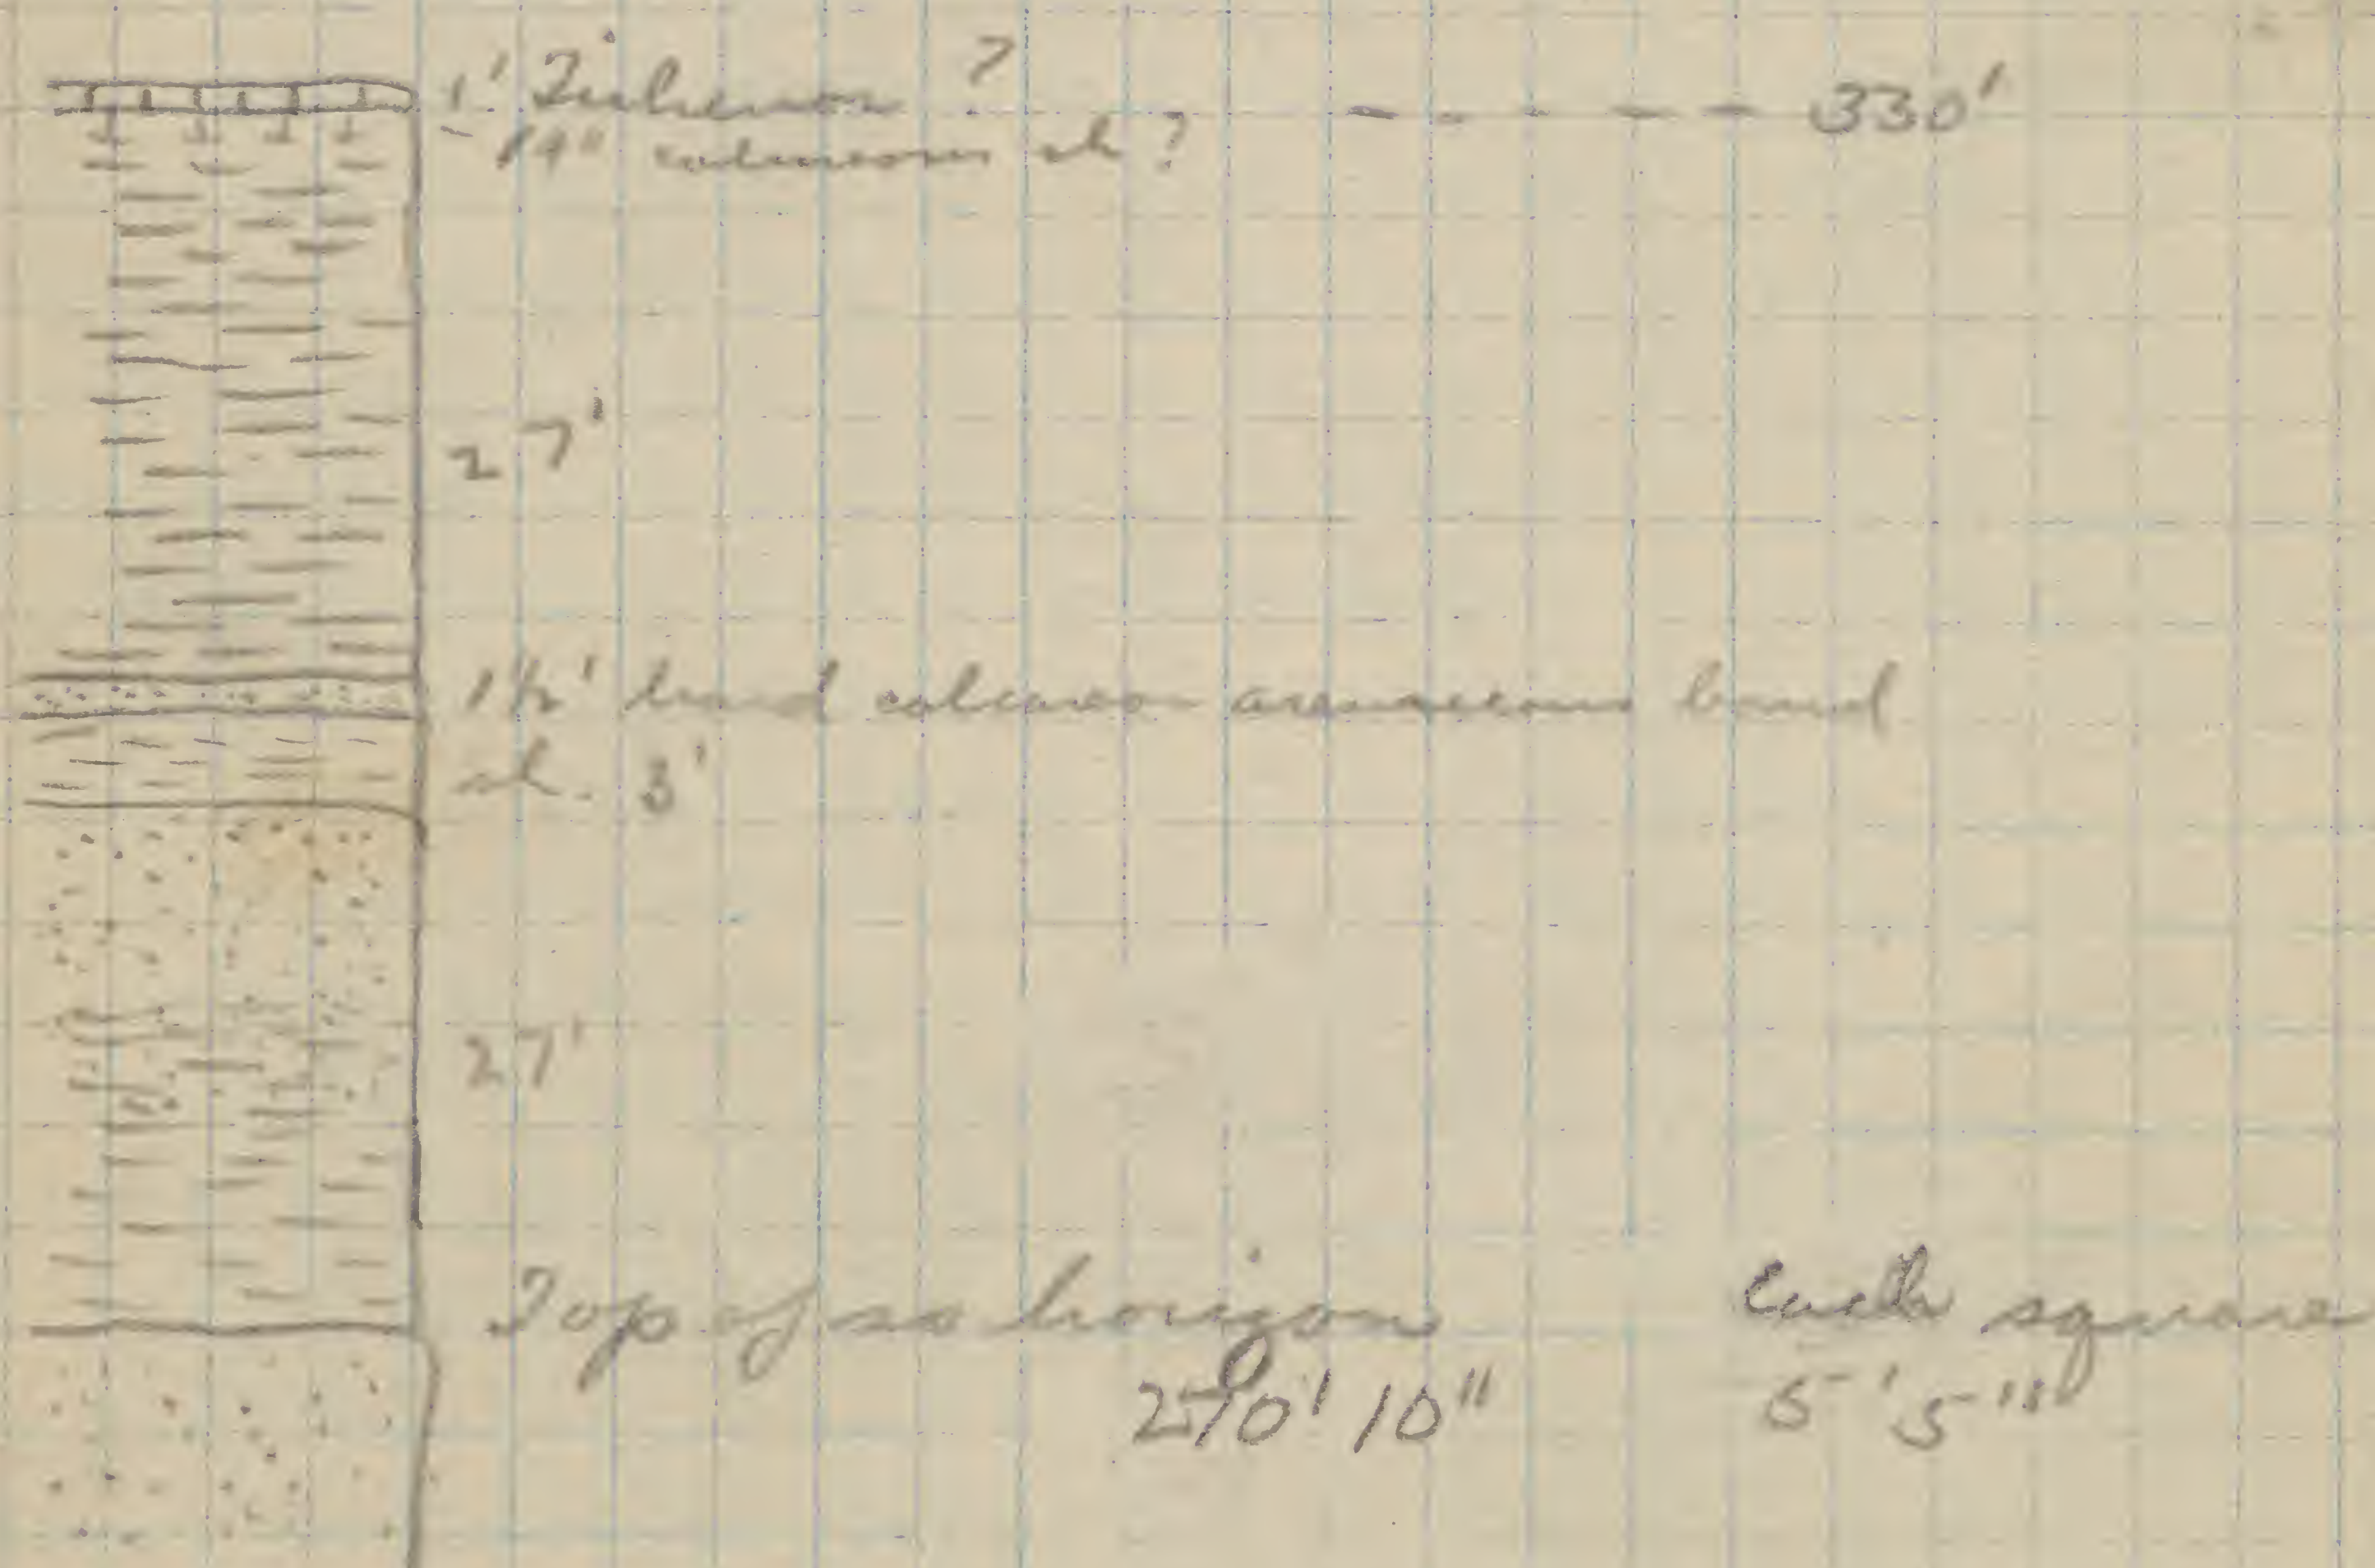 1' Tichenor ? - - - - - 330'
14" calcareous sh ?
27'
1½' hard calcareous arenaceous band
sh. 3'
27'
Top of ss horizon
270' 10"
Each square
5' 5"